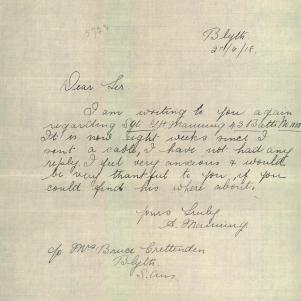 5723
Blyth
2nd/6/18.
Dear Sir
I am writing to you again
regarding Sgt G H Manning 43 Battn. No 1110
It is now eight weeks since I
sent a cable, I have not had any
reply. I feel very anxious & would
be very thankful to you if you
could find his where about.
yours Truly
A. Manning
c/o Mrs Bruce Crettenden
Blyth
S. Aus